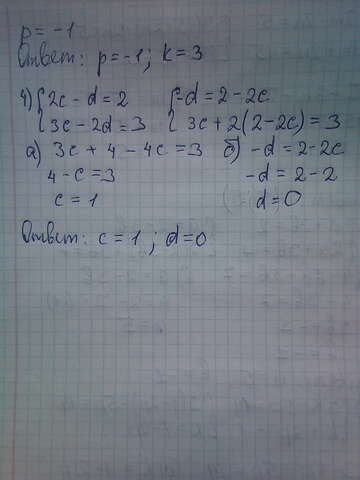 p = -1
Ответ: p = -1; k = 3
4) { 2c - d = 2 { -d = 2 - 2c
3c - 2d = 3 3c + 2(2 - 2c) = 3
а) 3c + 4 - 4c = 3 б) -d = 2 - 2c
4 - c = 3 -d = 2 - 2
c = 1 d = 0
Ответ: c = 1 ; d = 0